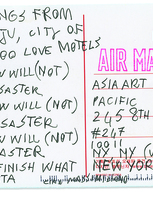 NGS FROM
JU, CITY OF
OO LOVE MOTELS
W WILL (NOT)
SASTER
W WILL (NOT)
SASTER
W WILL (NOT)
ASTER
FINISH WHAT
TA
AIR MA
ASIA ART
PACIFIC
245 8TH
#247
10011
NY NY (U
NEW YORK